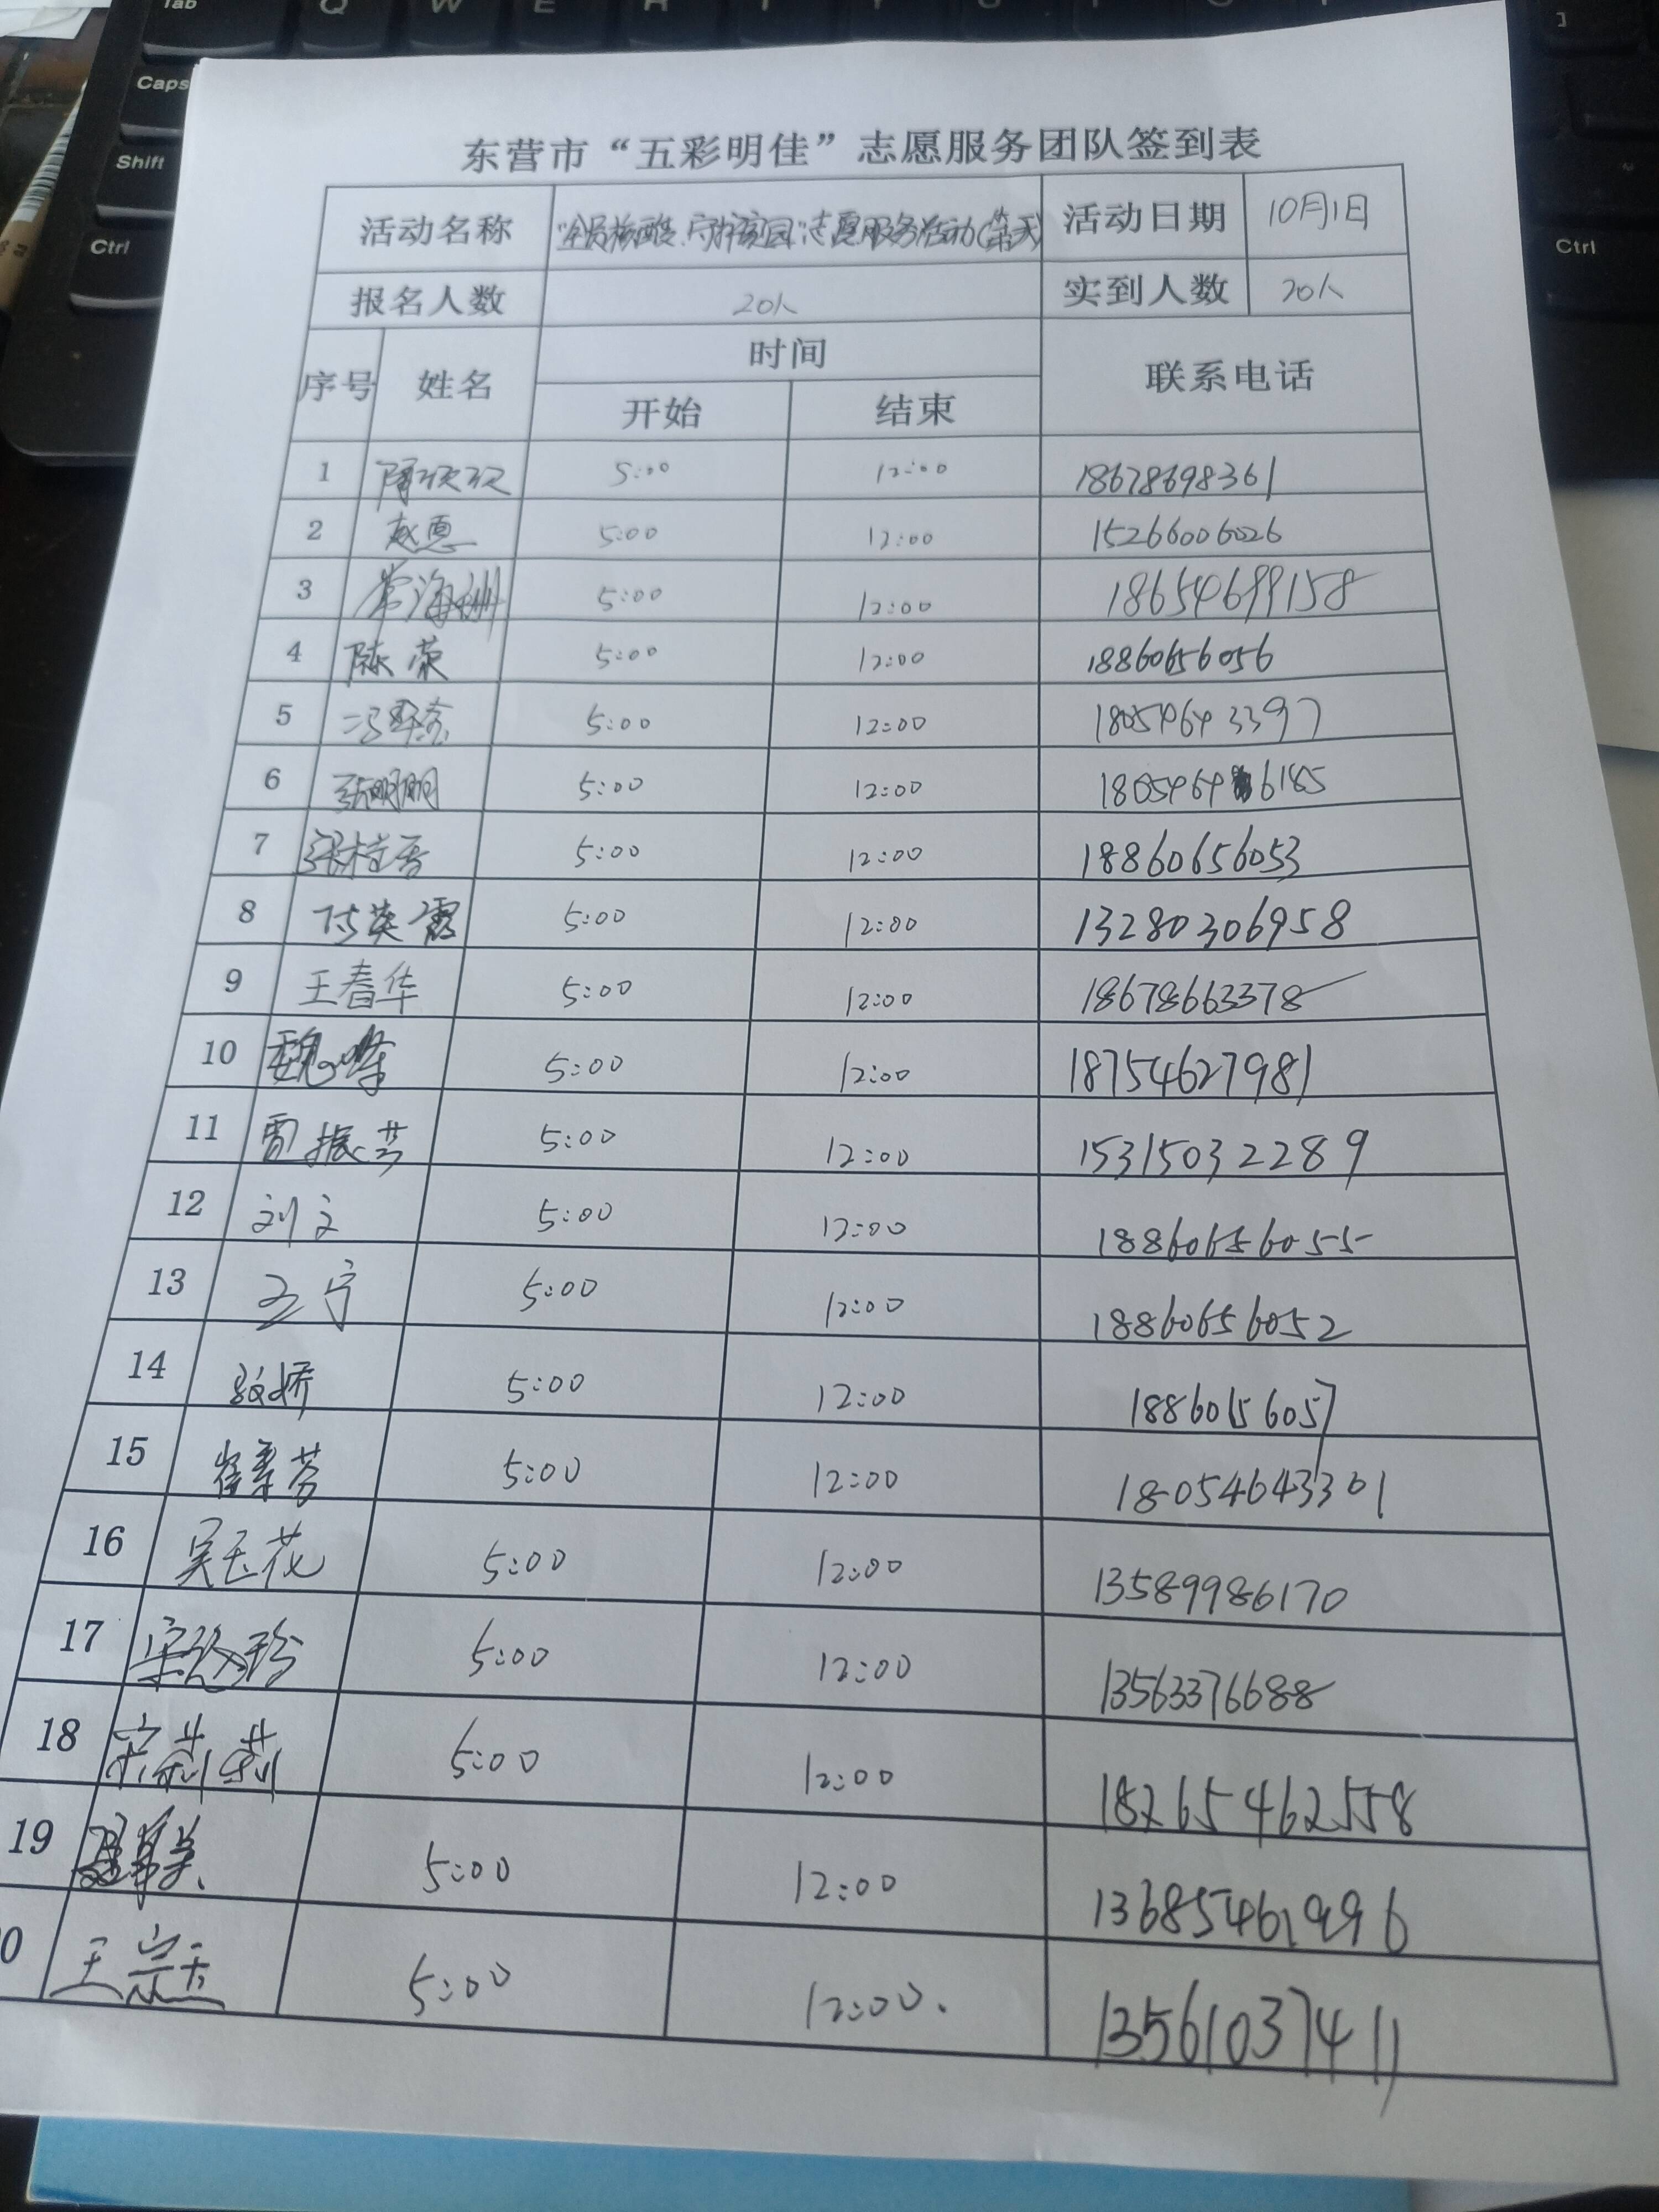 Tab Q W E
Caps
Shift
Ctrl
]
Ctrl
东营市“五彩明佳”志愿服务团队签到表
活动名称 “全员核酸、守护家园”志愿服务活动 活动日期 10月1日
报名人数 20人 实到人数 20人
序号 姓名 时间 联系电话
开始 结束
1 5:00 12:00 18678698361
2 赵恩 5:00 12:00 15266006026
3 常海 5:00 12:00 18654699158
4 陈荣 5:00 12:00 18860656056
5 5:00 12:00 18054643397
6 张明明 5:00 12:00 18054646185
7 5:00 12:00 18860656053
8 付英霞 5:00 12:00 13280306958
9 王春华 5:00 12:00 18678663378
10 魏峰 5:00 12:00 18754627981
11 贾振芸 5:00 12:00 15315032289
12 刘文 5:00 12:00 18860656055
13 王宁 5:00 12:00 18860656052
14 5:00 12:00 18860656057
15 崔秀芬 5:00 12:00 18054643301
16 吴玉花 5:00 12:00 13589986170
17 5:00 12:00 13563376688
18 宋莉莉 5:00 12:00 18265462558
19 5:00 12:00 13685461996
0 王宗玉 5:00 12:00. 13561037411